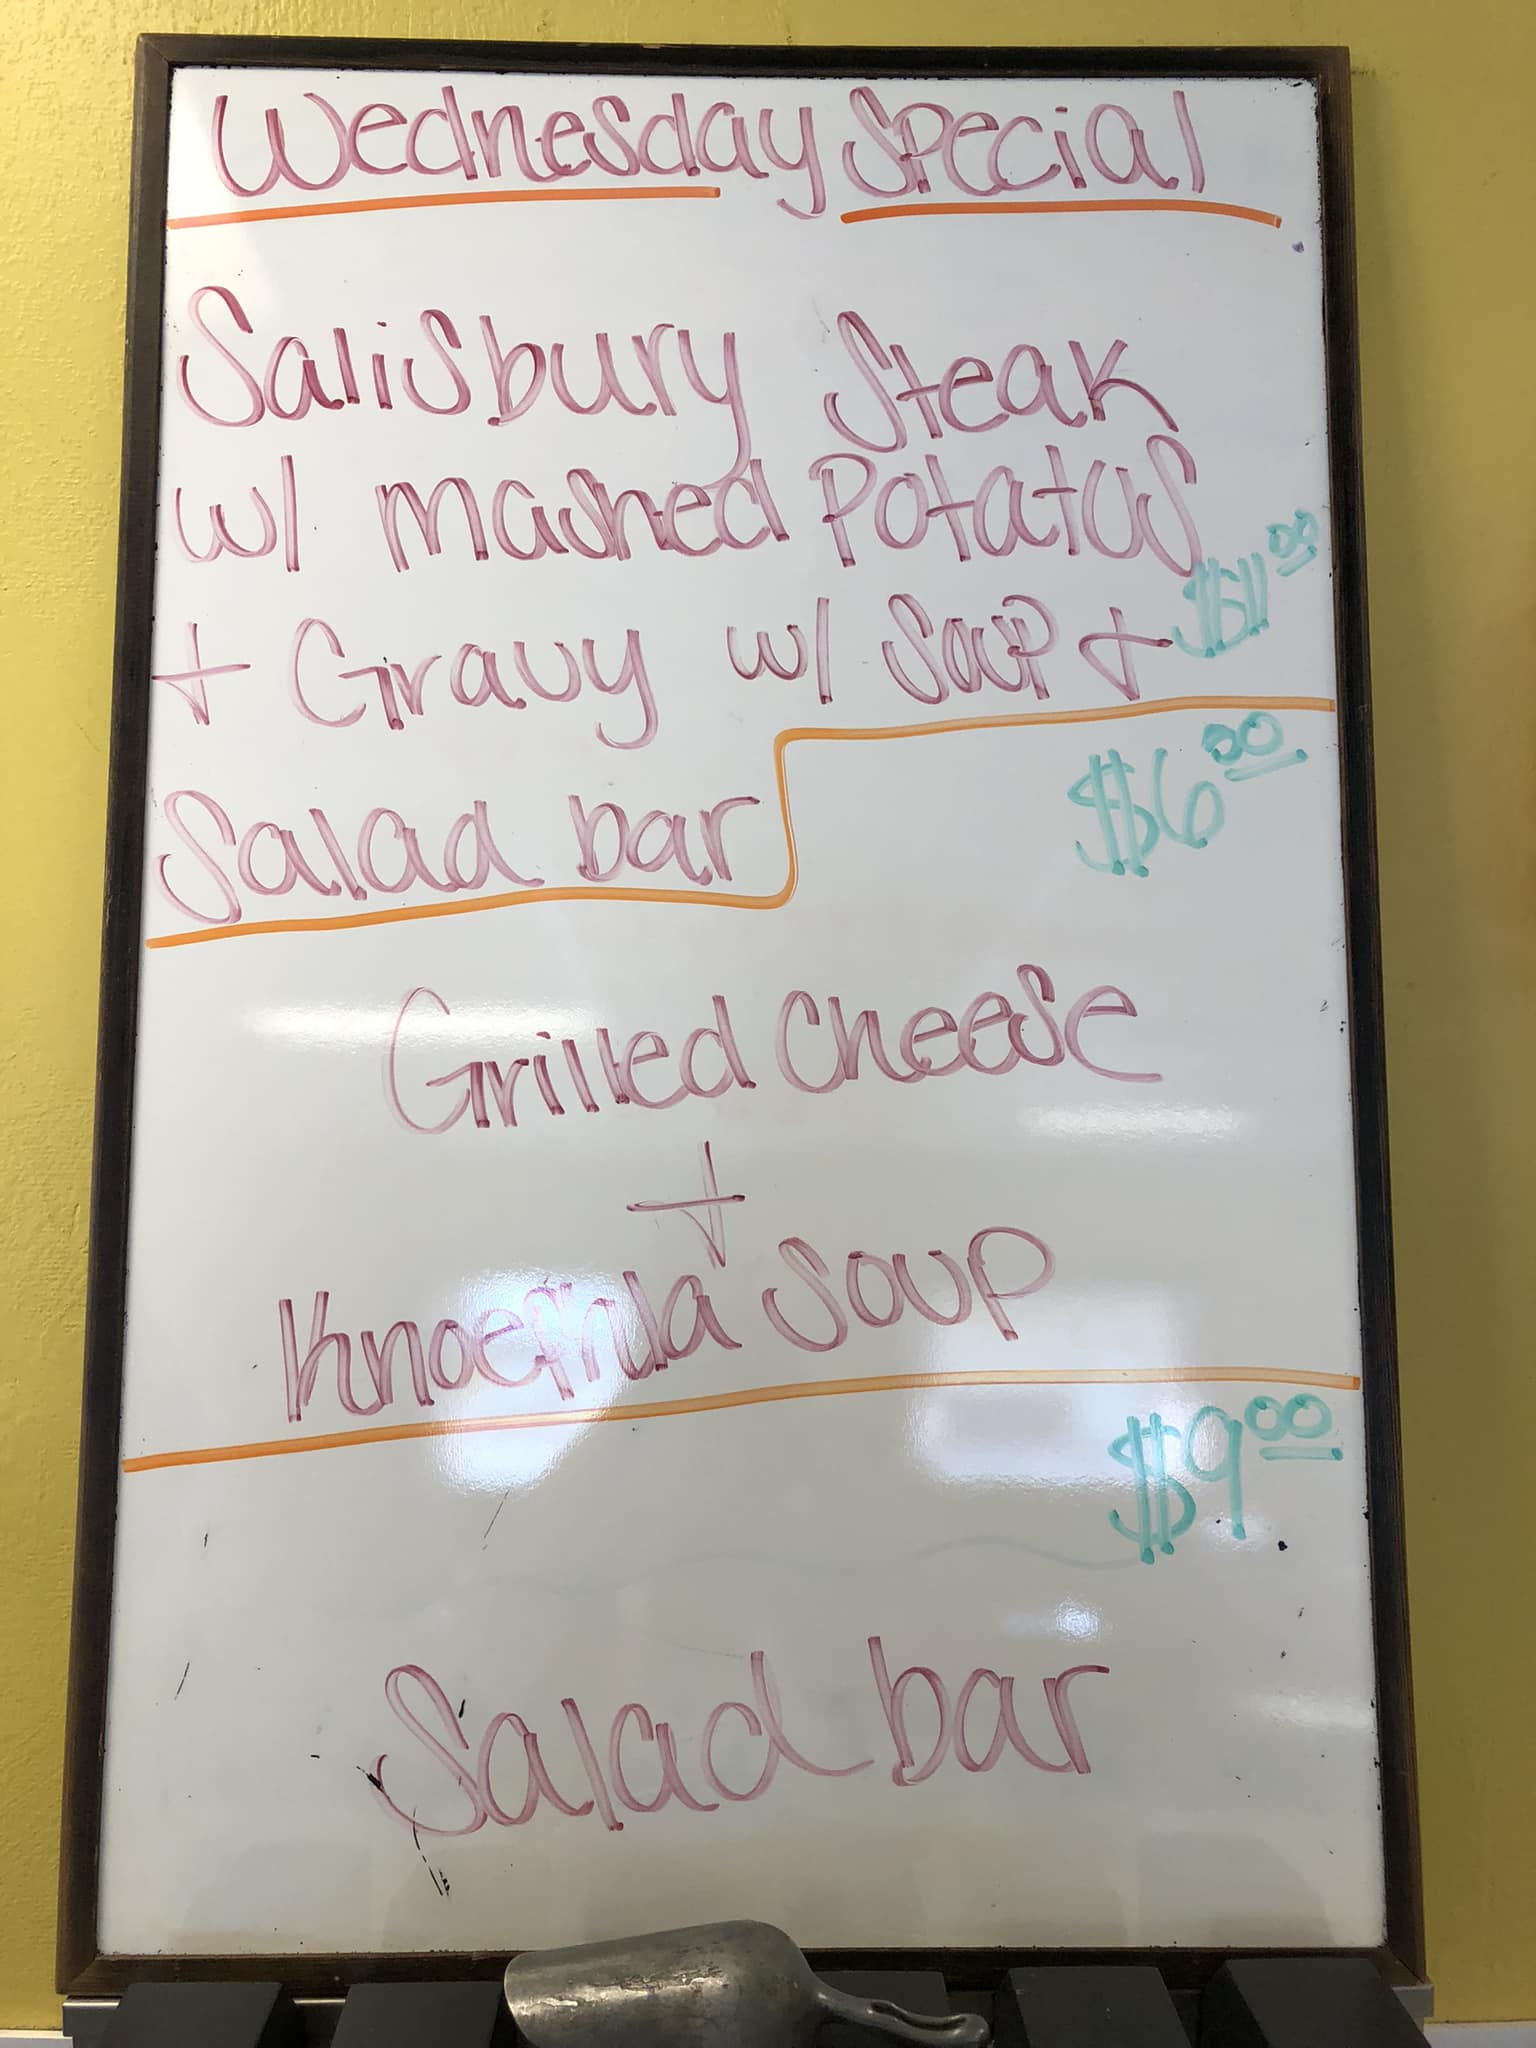 Wednesday Special
Salisbury Steak
w/ mashed Potatos
+ Gravy w/ Soup + $11.00
Salad bar
$6.00
Grilled Cheese
+
Knoephla Soup
$9.00
Salad bar